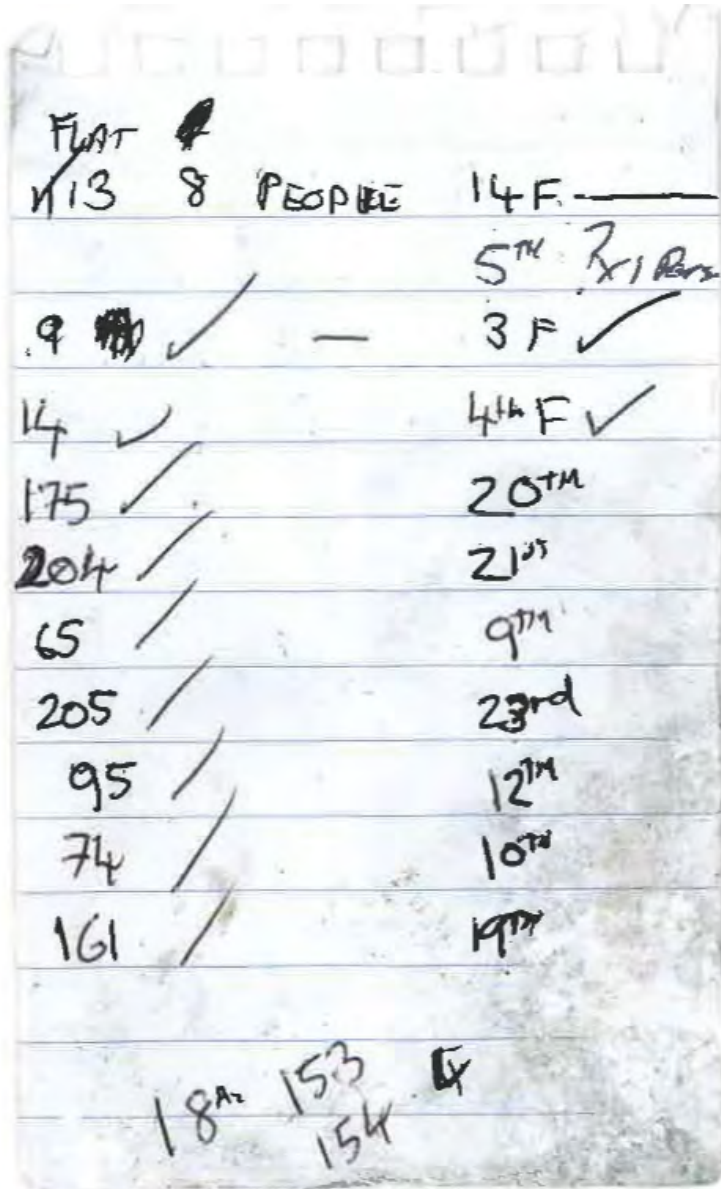 FLAT
113 8 PEOPLE 14F
5TH
9 — 3F ✓
14 ✓ 4th F ✓
175 ✓ 20TH
204 / 21ST
65 / 9TH
205 / 23rd
95 / 12TH
74 / 10TH
161 / 19TH
18 153
154